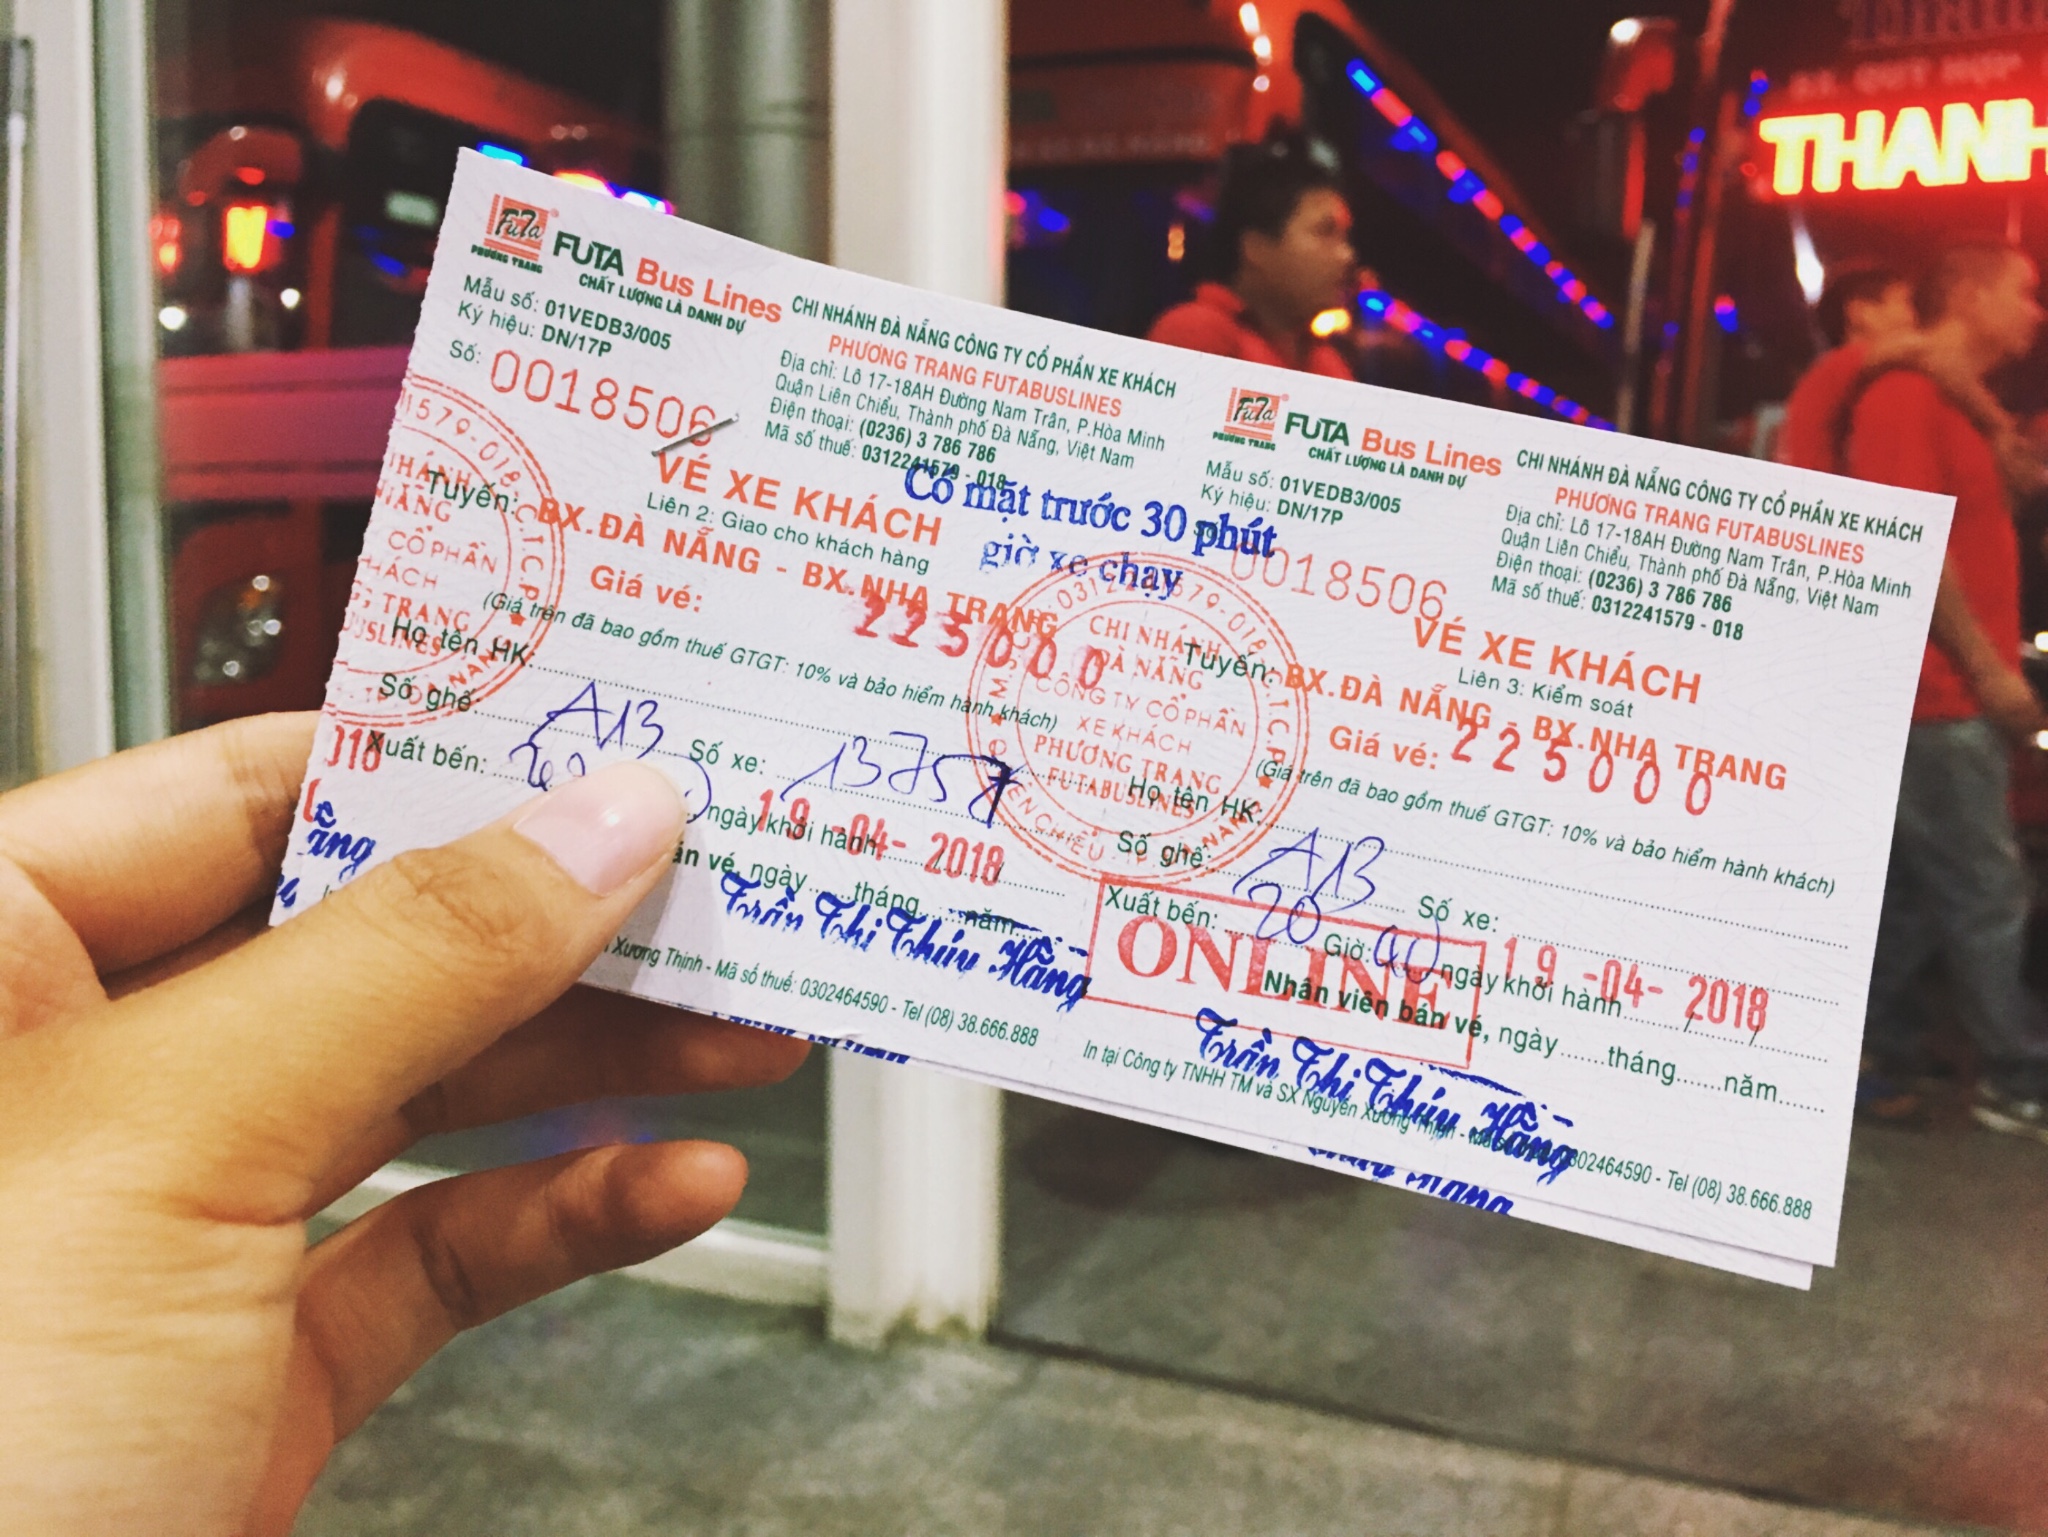 FuTa
PHƯƠNG TRANG
FUTA Bus Lines
CHẤT LƯỢNG LÀ DANH DỰ
Mẫu số: 01VEDB3/005
Ký hiệu: DN/17P
Số: 0018506
CHI NHÁNH ĐÀ NẴNG CÔNG TY CỔ PHẦN XE KHÁCH
PHƯƠNG TRANG FUTABUSLINES
Địa chỉ: Lô 17-18AH Đường Nam Trân, P.Hòa Minh
Quận Liên Chiểu, Thành phố Đà Nẵng, Việt Nam
Điện thoại: (0236) 3 786 786
Mã số thuế: 0312241579 - 018
VÉ XE KHÁCH
Liên 2: Giao cho khách hàng
Có mặt trước 30 phút
giờ xe chạy
Tuyến: BX.ĐÀ NẴNG - BX.NHA TRANG
Giá vé: 225000
(Giá trên đã bao gồm thuế GTGT: 10% và bảo hiểm hành khách)
Họ tên HK:
Số ghế A13 Số xe: 13757
Xuất bến: ngày khởi hành 19-04-2018
án vé, ngày tháng năm
Trần Thị Thúy Hằng
Xương Thịnh - Mã số thuế: 0302464590 - Tel (08) 38.666.888
CHI NHÁNH
ĐÀ NẴNG
CÔNG TY CỔ PHẦN
XE KHÁCH
PHƯƠNG TRANG
FUTABUSLINES
FuTa
PHƯƠNG TRANG
FUTA Bus Lines
CHẤT LƯỢNG LÀ DANH DỰ
Mẫu số: 01VEDB3/005
Ký hiệu: DN/17P
0018506
CHI NHÁNH ĐÀ NẴNG CÔNG TY CỔ PHẦN XE KHÁCH
PHƯƠNG TRANG FUTABUSLINES
Địa chỉ: Lô 17-18AH Đường Nam Trân, P.Hòa Minh
Quận Liên Chiểu, Thành phố Đà Nẵng, Việt Nam
Điện thoại: (0236) 3 786 786
Mã số thuế: 0312241579 - 018
VÉ XE KHÁCH
Liên 3: Kiểm soát
Tuyến: BX.ĐÀ NẴNG - BX.NHA TRANG
Giá vé: 225000
(Giá trên đã bao gồm thuế GTGT: 10% và bảo hiểm hành khách)
Họ tên HK:
Số ghế: A13 Số xe:
Xuất bến: 20 Giờ: 00 ngày khởi hành 19-04-2018
ONLINE
Nhân viên bán vé, ngày tháng năm
Trần Thị Thúy Hằng
In tại Công ty TNHH TM và SX Nguyễn Xương Thịnh - Mã số thuế: 0302464590 - Tel (08) 38.666.888
THANH